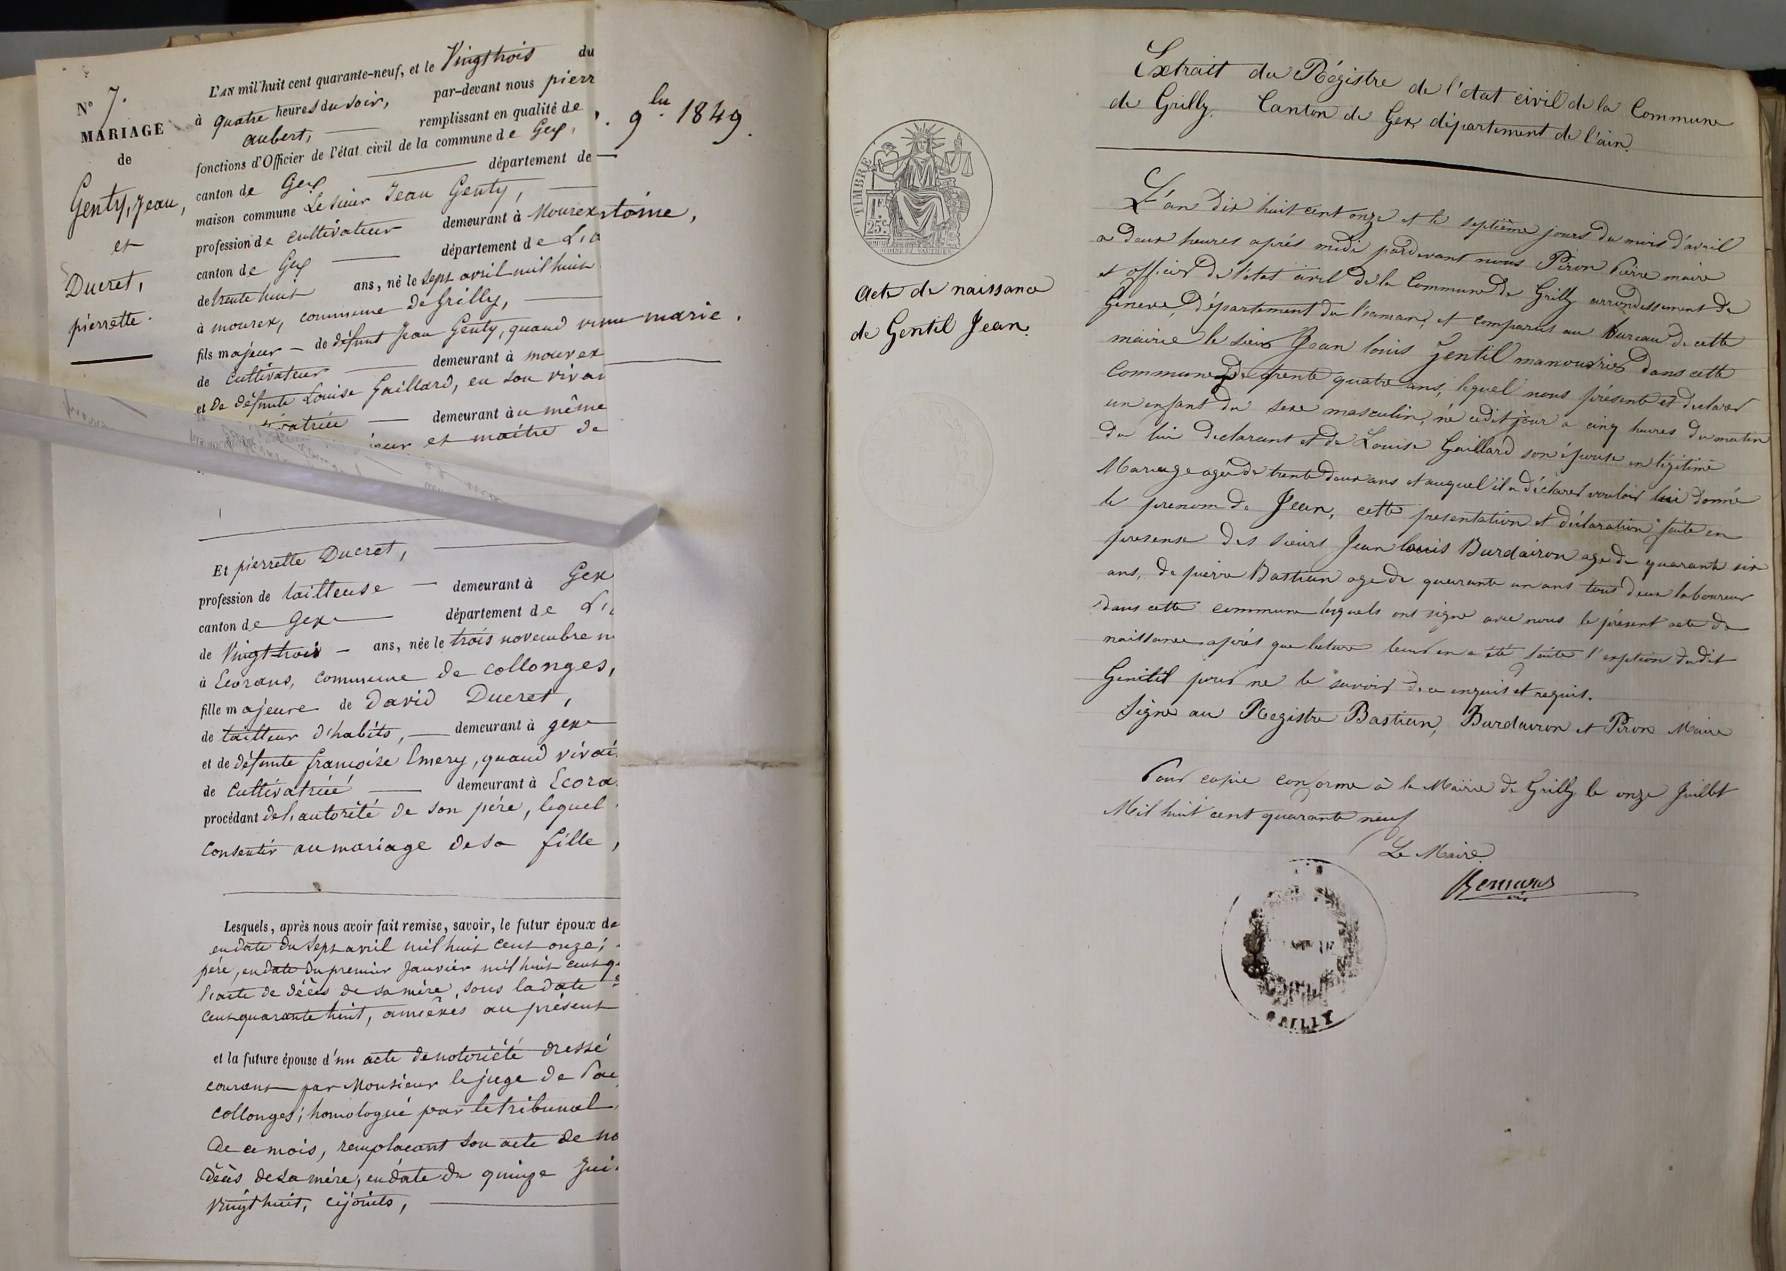 N° 7.
MARIAGE
de
Genty, Jean,
et
Ducret,
pierrette.
L'AN mil huit cent quarante-neuf, et le Vingthois du
à quatre heures du soir, par-devant nous pierr
aubert, remplissant en qualité de
fonctions d'Officier de l'état civil de la commune de Gex,
canton de Gex département de
maison commune Le sieur Jean Genty,
profession de cultivateur demeurant à Mourex
canton de Gex département de L'a
de trente huit ans, né le sept avril mil huit
à mourex, commune de Grilly,
fils majeur de défunt Jean Genty, quand viv
de Cultivateur demeurant à mourex
et de défunte Louise Gaillard, en son viva
demeurant au même
et maître de
Et pierrette Ducret,
profession de tailleuse demeurant à Gex
canton de Gex département de L'
de Vingthois ans, née le trois novembre m
à Ecorans, commune de collonges,
fille majeure de David Ducret,
de tailleur d'habits, demeurant à gex
et de défunte françoise Emery, quand vivai
de Cultivatrice demeurant à Ecora
procédant de l'autorité de son père, lequel
Consentir au mariage de sa fille,
Lesquels, après nous avoir fait remise, savoir, le futur époux de
en date du Sept avril mil huit cent onze;
père, en date du premier Janvier mil huit cent q
l'acte de décès de sa mère, sous la date
cent quarante huit, annèxés au présent
et la future épouse d'un acte de notoriété dressé
courant par Monsieur le juge de Pai
Collonges; homologué par le tribunal
de ce mois, remplaçant son acte de na
décès de sa mère, en date du quinze Jui
Vingt huit, cijoints,
9bre 1849.
toine,
marie.
TIMBRE
1F.
25c.
Acte de naissance
de Gentil Jean.
Extrait du Régistre de l'état civil de la Commune
de Grilly. Canton de Gex département de l'ain.
L'an dix huit cent onze et le septième jours du mois d'avril
a deux heures après midi pardevant nous Piron Pierre maire
et officier de l'état civil de la Commune de Grilly arrondissement de
Geneve, Département du Leman, et comparus au bureau de cette
mairie le sieur Jean louis Gentil manouvrier dans cette
Commune De trente quatre ans, lequel nous présente et declare
un enfant du sexe masculin, né cedit jour a cinq heures du matin
de lui declarant et de Louise Gaillard son épouse en légitime
Mariage agée de trente deux ans et auquel il a déclarer vouloir lui donné
le prenom de Jean, cette presentation et déclaration faite en
presense des sieurs Jean louis Burdairon age de quarante six
ans, de pierre Bastian age de quarante un ans tous deux laboureur
dans cette commune lesquels ont signé avec nous le présent acte de
naissance après que lecture leur en a été faite l'exption dudit
Gentil pour ne le savoir de ce enquis et requis.
Signe au Registre Bastian, Burdairon et Piron Maire
Pour copie conforme à la Mairie de Grilly le onze Juillet
Mil huit cent quarante neuf
Le Maire.
GRILLY